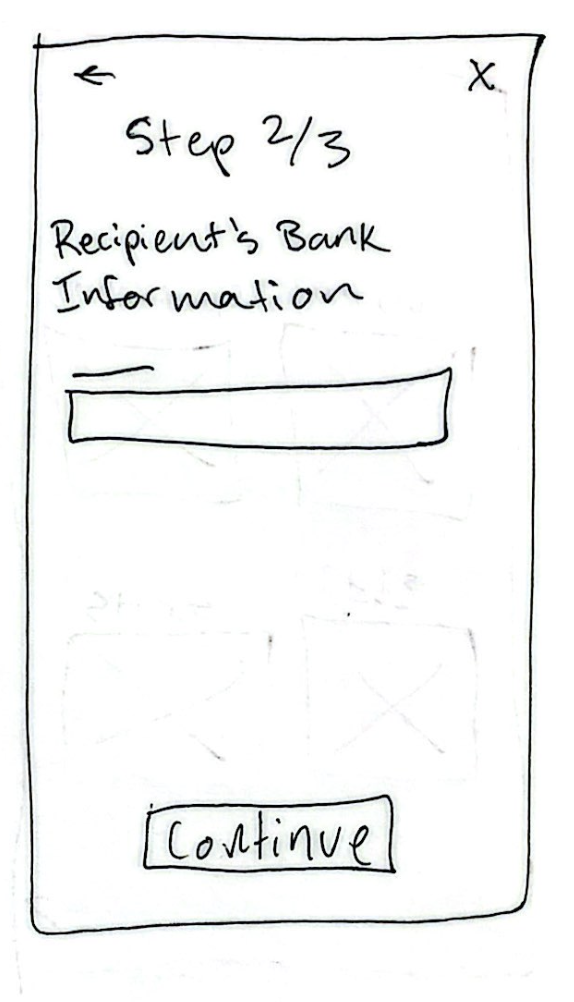 ←
X
Step 2/3
Recipient's Bank
Information
Continue